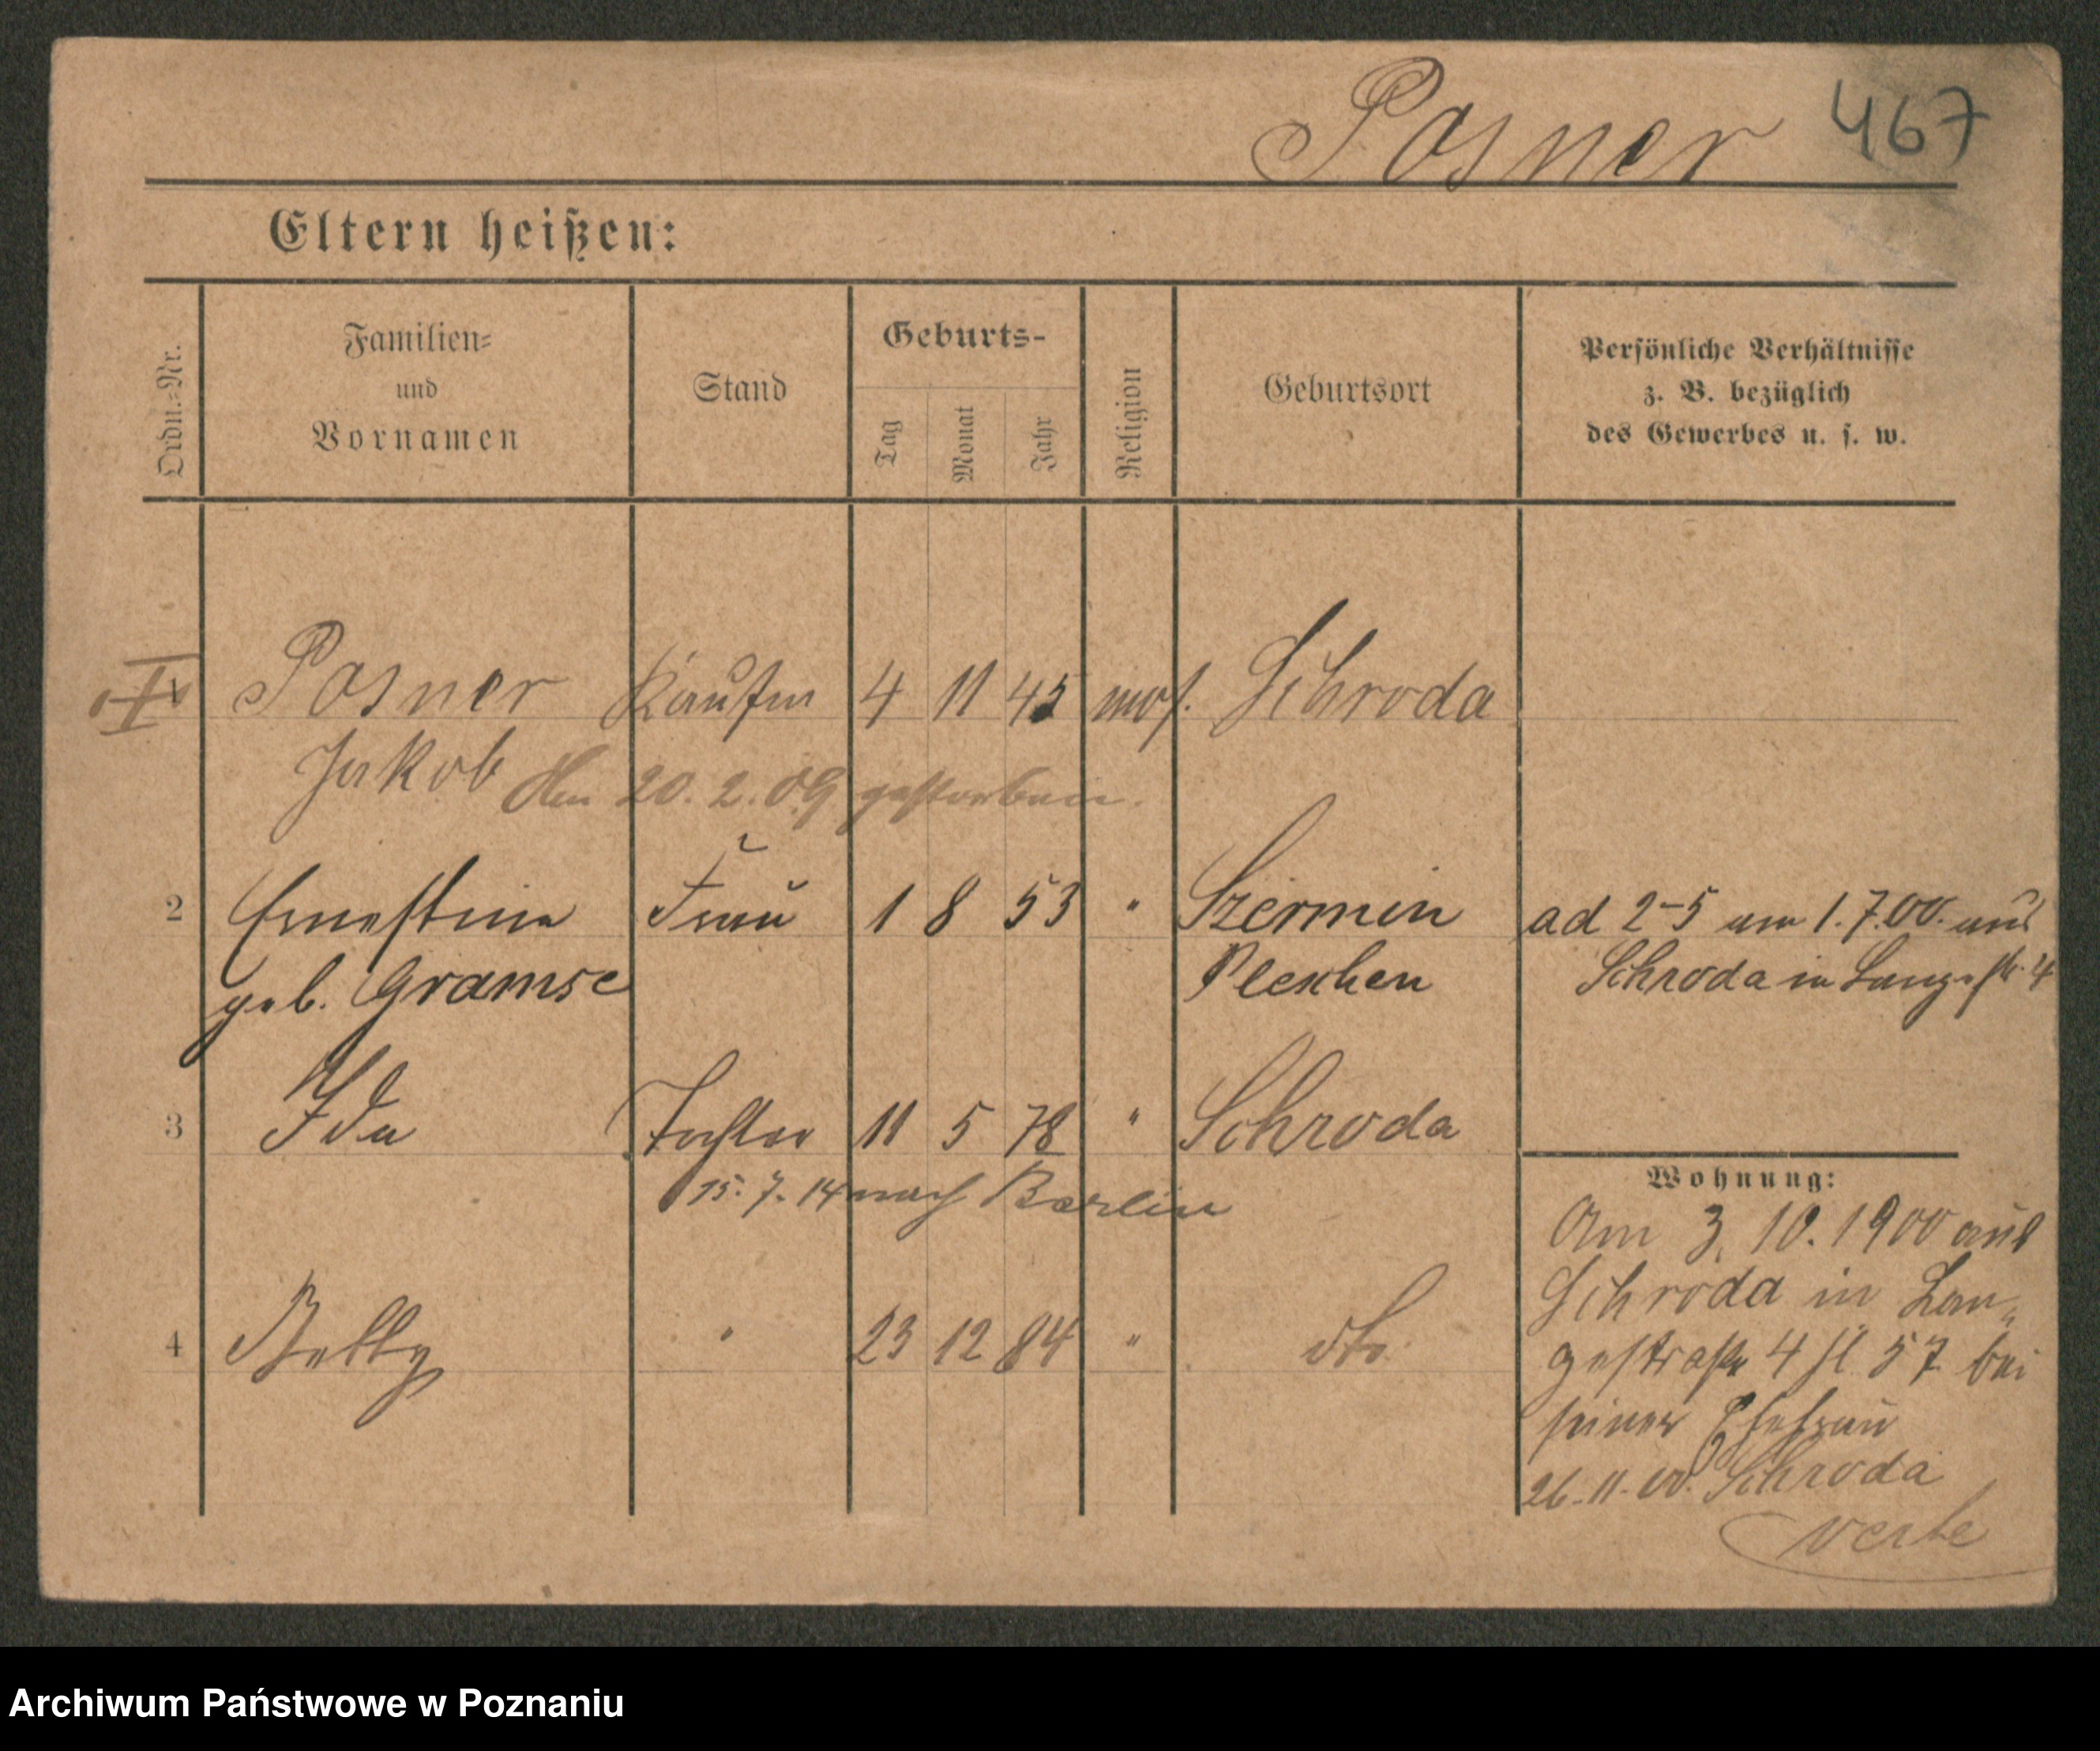 Posner 467
Eltern heißen:
Ordn.-Nr.
Familien-
und
Vornamen
Stand
Geburts-
Tag
Monat
Jahr
Religion
Geburtsort
Persönliche Verhältnisse
z. B. bezüglich
des Gewerbes u. s. w.
Posner Kaufm 4 11 45 mos. Schroda
Jakob Am 20. 2. 09 gestorben.
2 Ernestine Frau 1 8 53 " Szermin ad 2-5 am 1.7.00. aus
geb. Gramse Pleschen Schroda in Langestr. 4
3 Ida Tochter 11 5 78 " Schroda
15. 7. 14 nach Berlin
Wohnung:
Am 3. 10. 1900 aus
Schroda in Lan-
4 Betty " 23 12 84 " dto.
gestraße 4 bei
seiner Ehefrau
26. 11. 00. Schroda